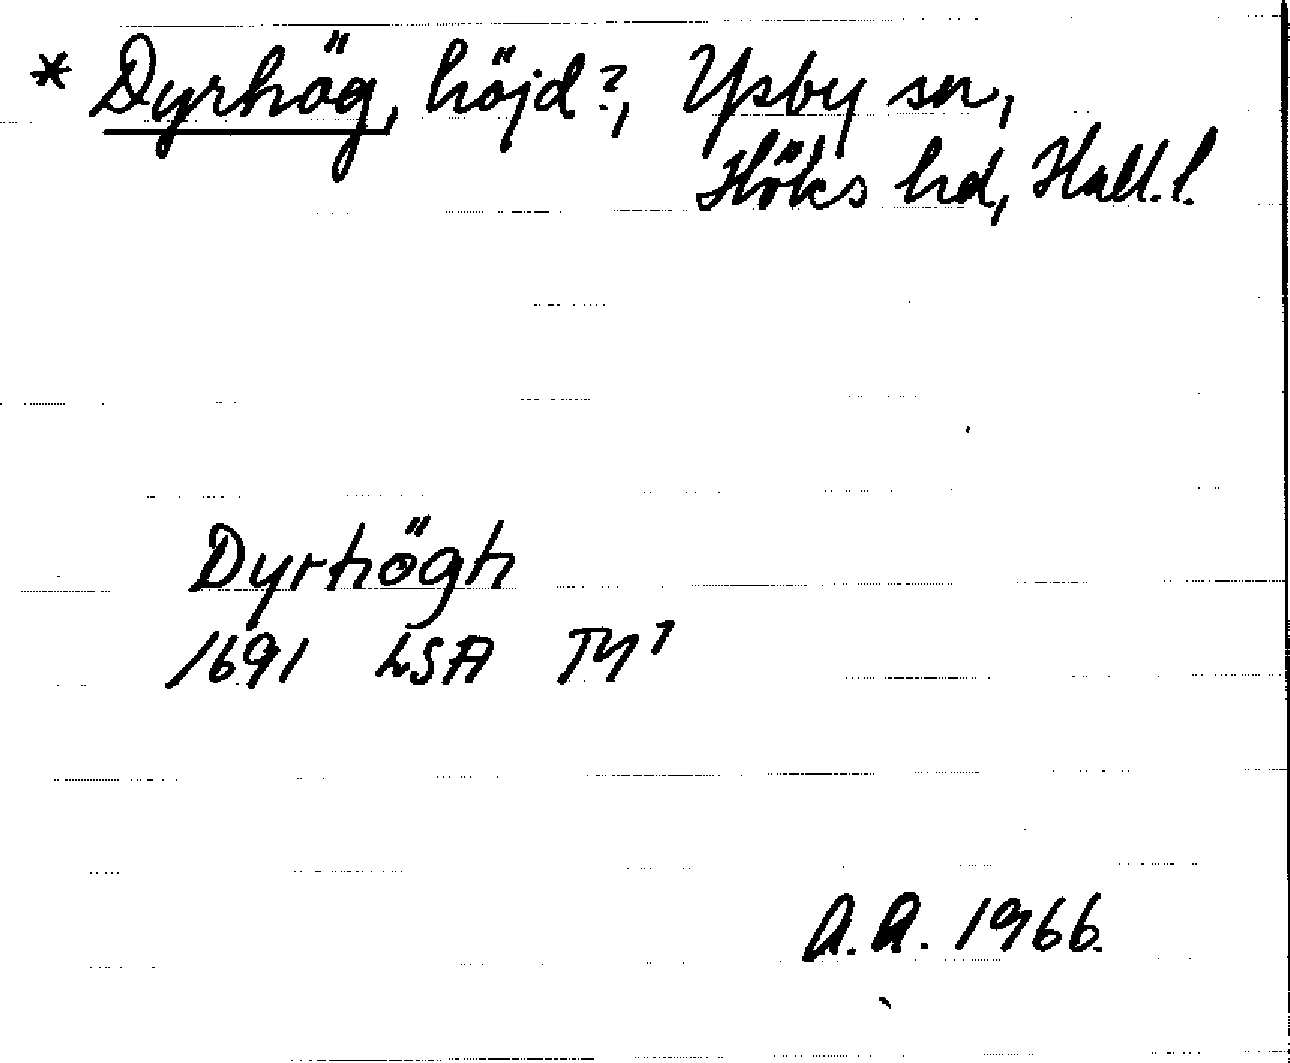 * Dyrhög, höjd?, Ysby sn,
Höks hd, Hall. l.
Dyrhögh
1691 LSA TY¹
A.A. 1966.